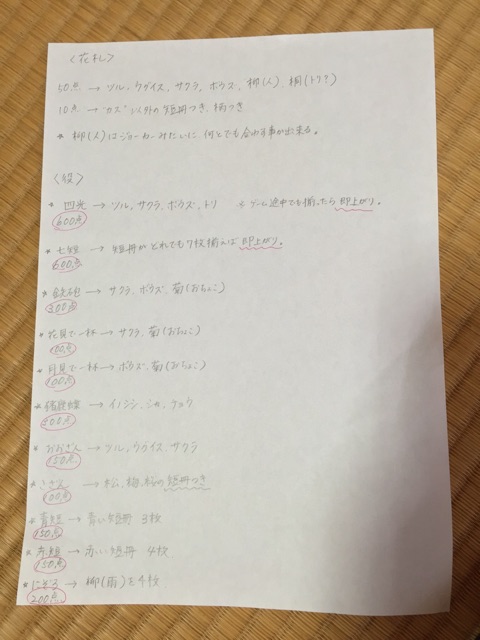 〈花札〉
50点 → ツル、ウグイス、サクラ、ボウズ、柳(人)、桐(トリ?)
10点 → "カス"以外の短冊つき、柄つき
* 柳(人)はジョーカーみたいに、何とでも合わす事が出来る。
〈役〉
* 四光 → ツル、サクラ、ボウズ、トリ ※ ゲーム途中でも揃ったら即上がり。
600点
* 七短 → 短冊がどれでも7枚揃えば即上がり。
600点
* 鉄砲 → サクラ、ボウズ、菊(おちょこ)
300点
* 花見で一杯 → サクラ、菊(おちょこ)
100点
* 月見で一杯 → ボウズ、菊(おちょこ)
100点
* 猪鹿蝶 → イノシシ、シカ、チョウ
300点
* おおざん → ツル、ウグイス、サクラ
150点
* → 松、梅、桜の短冊つき
100点
* 青短 → 青い短冊 3枚
150点
* 赤短 → 赤い短冊 4枚
150点
* → 柳(雨)を4枚
200点